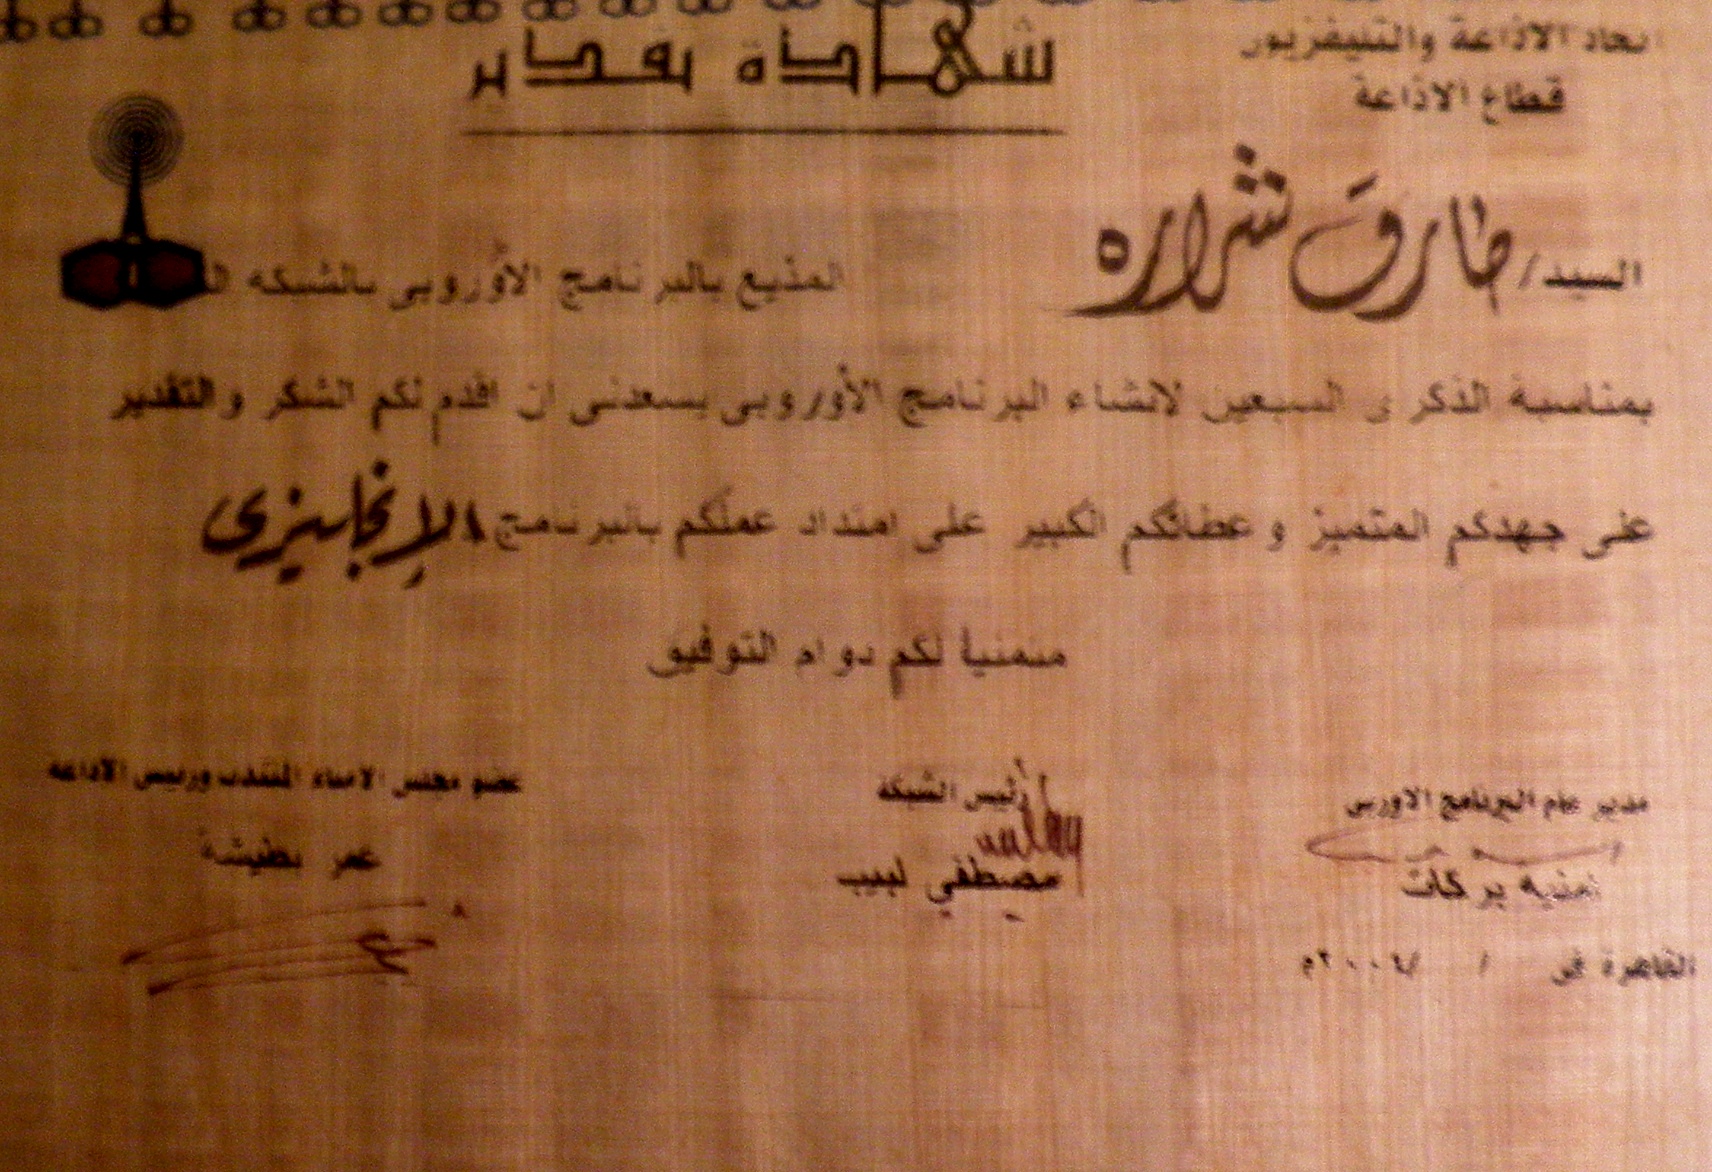 اتحاد الاذاعة والتليفزيون
قطاع الاذاعة
شهادة تقدير
السيد/ طارق شراره المذيع بالبرنامج الأوروبى بالشبكه
بمناسبة الذكرى السبعين لانشاء البرنامج الأوروبى يسعدنى ان اقدم لكم الشكر والتقدير
على جهدكم المتميز وعطائكم الكبير على امتداد عملكم بالبرنامج الإنجليزى
متمنياً لكم دوام التوفيق
مدير عام البرنامج الاوربى
امنيه بركات
رئيس الشبكة
مصطفي لبيب
عضو مجلس الامناء المنتدب ورئيس الاذاعة
عمر بطيشة
القاهرة فى / /٢٠٠٤م